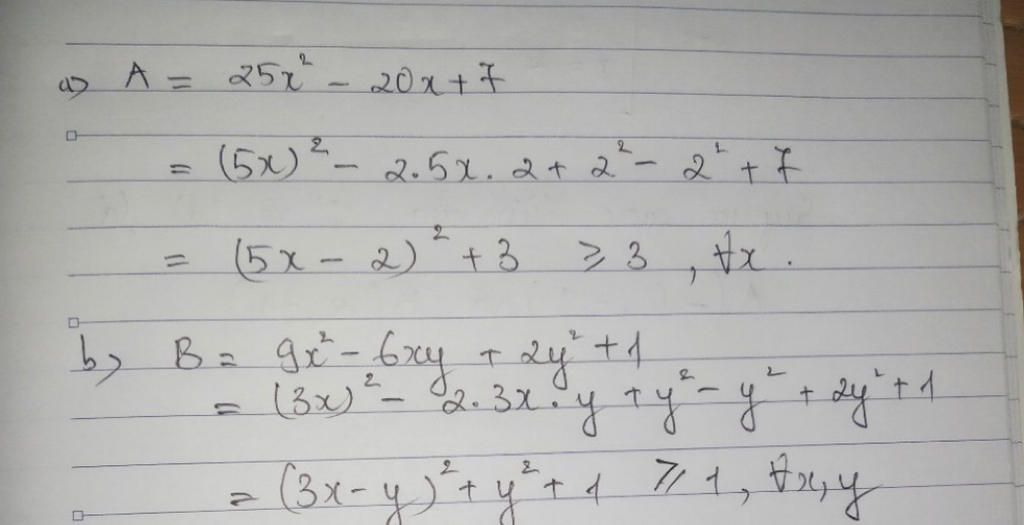 a) A = 25x² - 20x + 7
= (5x)² - 2.5x.2 + 2² - 2² + 7
= (5x - 2)² + 3 ⩾ 3, ∀x.
b) B = 9x² - 6xy + 2y² + 1
= (3x)² - 2.3x.y + y² - y² + 2y² + 1
= (3x - y)² + y² + 1 ⩾ 1, ∀x,y